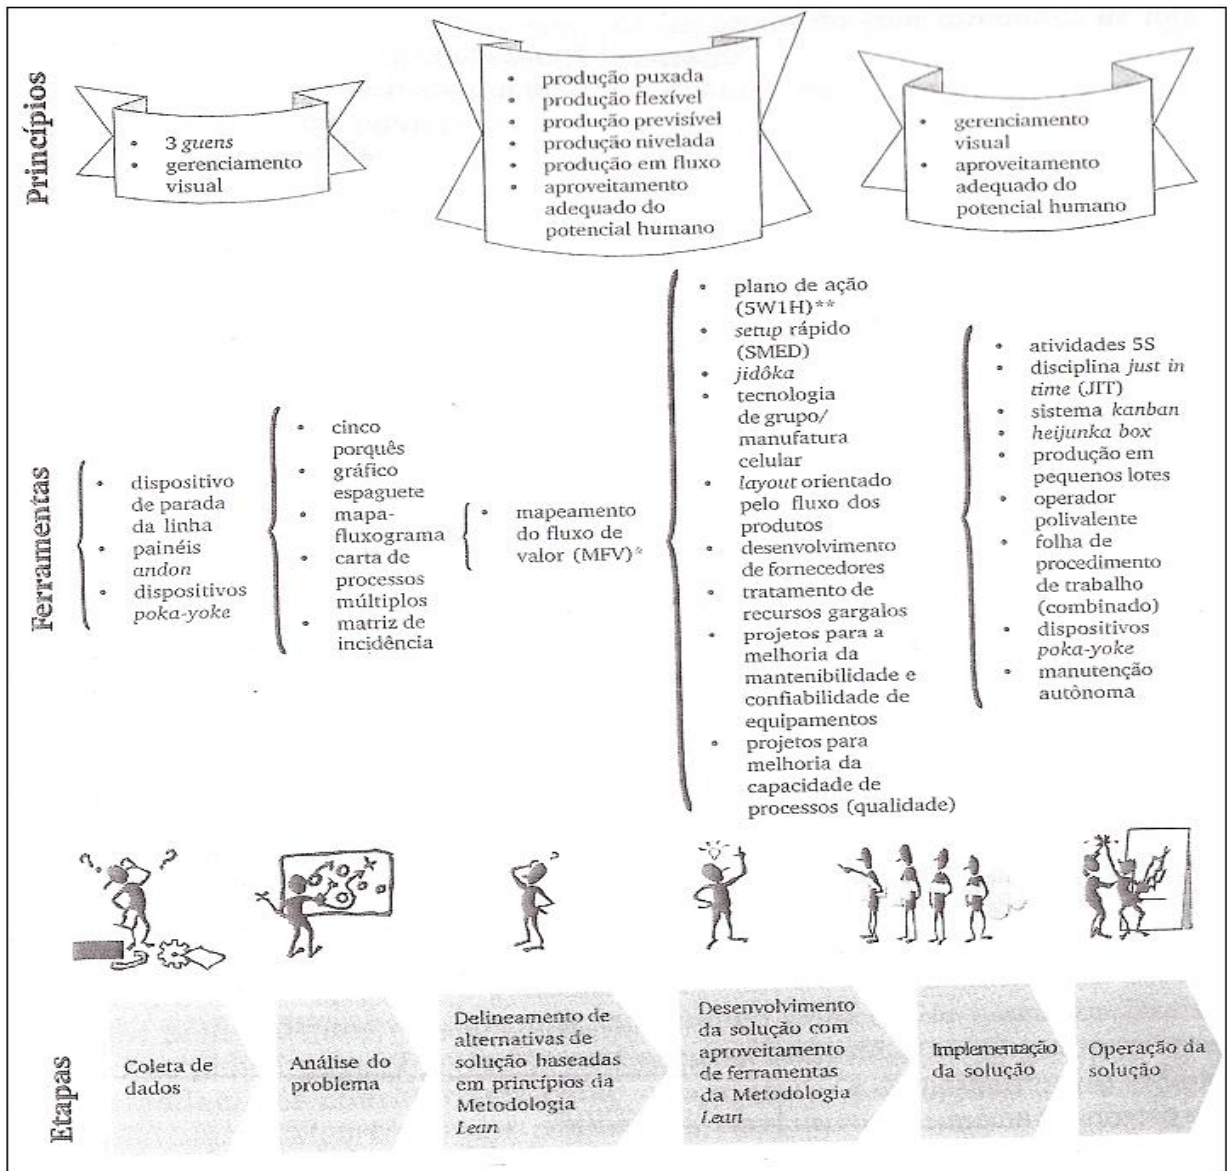 Princípios
• 3 guens
• gerenciamento
visual
• produção puxada
• produção flexível
• produção previsível
• produção nivelada
• produção em fluxo
• aproveitamento
adequado do
potencial humano
• gerenciamento
visual
• aproveitamento
adequado do
potencial humano
Ferramentas
• dispositivo
de parada
da linha
• painéis
andon
• dispositivos
poka-yoke
• cinco
porquês
• gráfico
espaguete
• mapa-
fluxograma
• carta de
processos
múltiplos
• matriz de
incidência
• mapeamento
do fluxo de
valor (MFV)*
• plano de ação
(5W1H)**
• setup rápido
(SMED)
• jidôka
• tecnologia
de grupo/
manufatura
celular
• layout orientado
pelo fluxo dos
produtos
• desenvolvimento
de fornecedores
• tratamento de
recursos gargalos
• projetos para a
melhoria da
mantenibilidade e
confiabilidade de
equipamentos
• projetos para
melhoria da
capacidade de
processos (qualidade)
• atividades 5S
• disciplina just in
time (JIT)
• sistema kanban
• heijunka box
• produção em
pequenos lotes
• operador
polivalente
• folha de
procedimento
de trabalho
(combinado)
• dispositivos
poka-yoke
• manutenção
autônoma
Etapas
Coleta de
dados
Análise do
problema
Delineamento de
alternativas de
solução baseadas
em princípios da
Metodologia
Lean
Desenvolvimento
da solução com
aproveitamento
de ferramentas
da Metodologia
Lean
Implementação
da solução
Operação da
solução